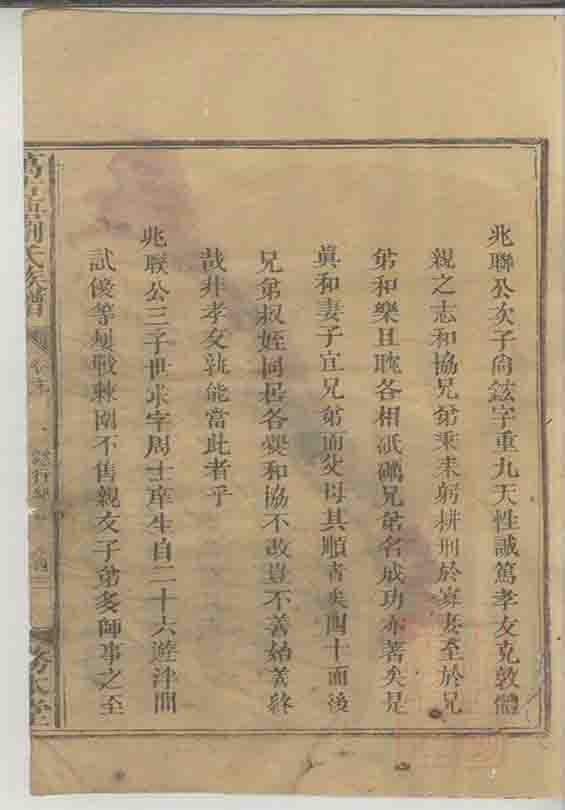 兆聯公次子尙鉉字重九天性誠篤孝友克敦體
親之志和協兄弟秉耒躬耕刑於寡妻至於兄
弟和樂且耽各相砥礪兄弟名成功亦著矣是
眞和妻子宜兄弟而父母其順者矣四十而後
兄弟叔姪同居各爨和協不改豈不善始善終
哉非孝友孰能當此者乎
兆聯公三子世求字周士庠生自二十六遊泮間
試優等屢戰棘圍不售親友子弟多師事之至
劉氏族譜